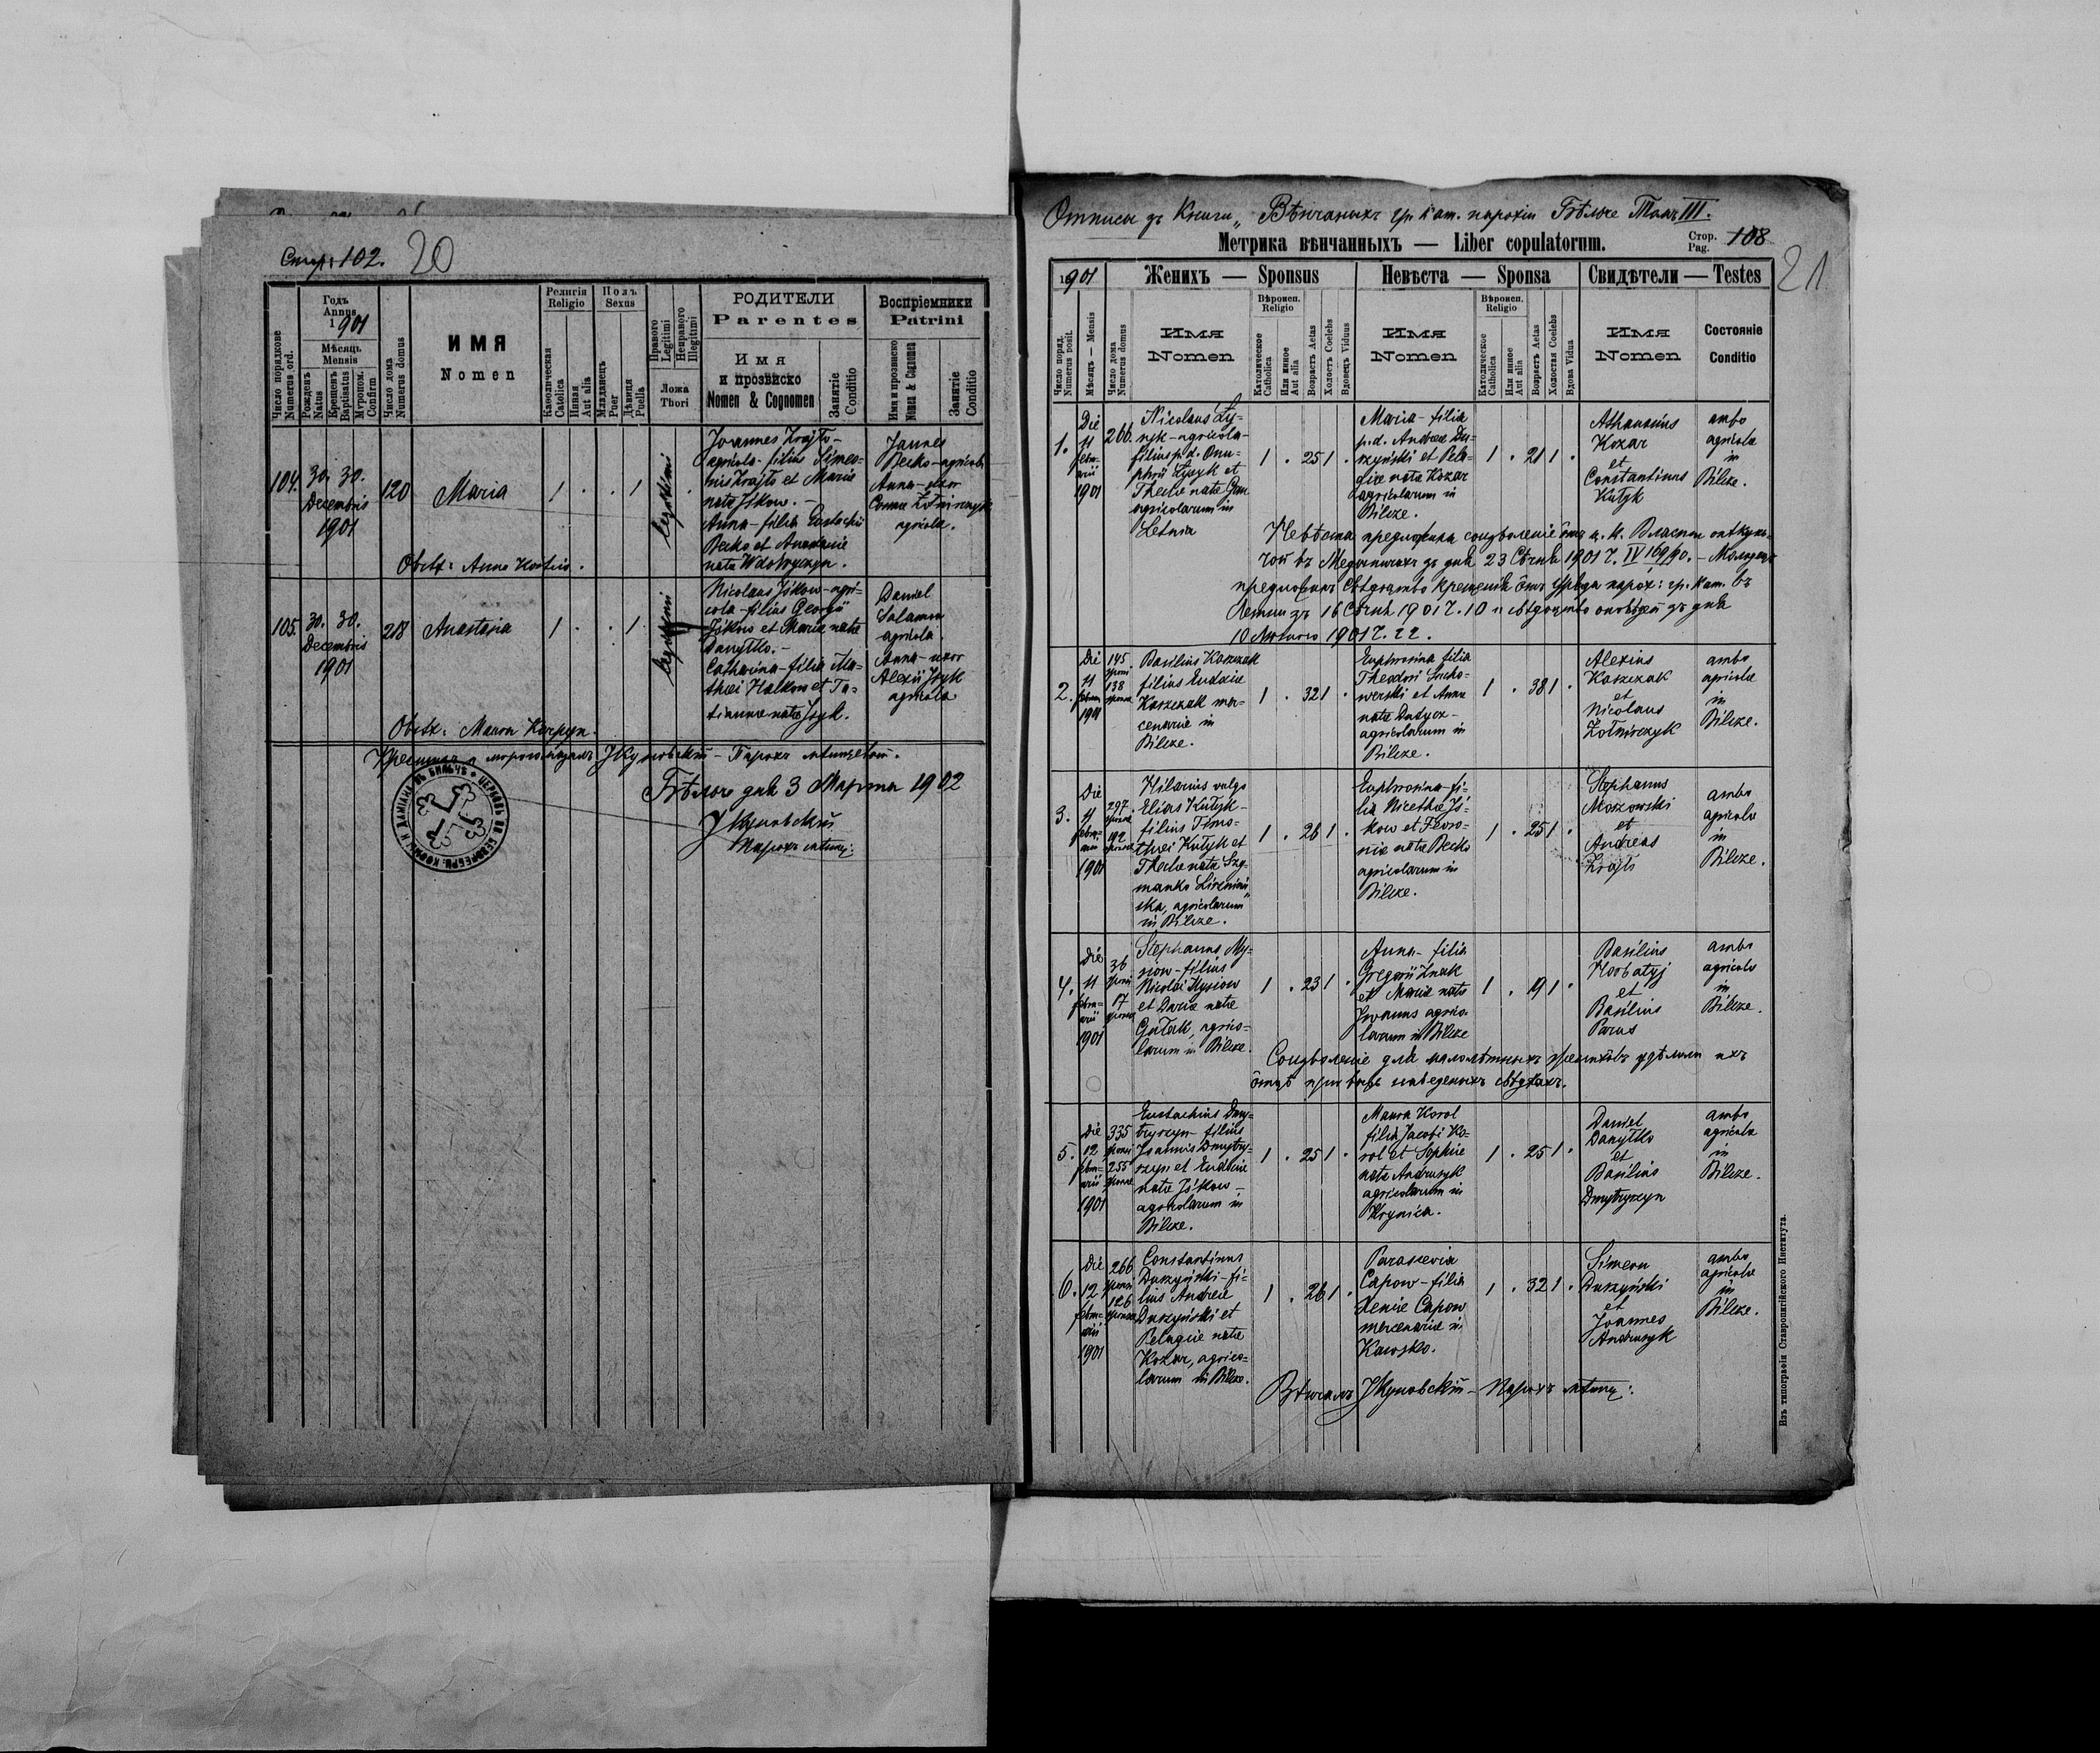 Стор: 102. 20
Число порядкове Numerus ord.
Годъ Annus 1901
Мѣсяцъ Mensis
Рожденъ Natus
Крещенъ Baptisatus
Мѵропом. Confirm
Число дома Numerus domus
ИМЯ Nomen
Религія Religio
Католическая Catolica
Иншая Aut alia
Полъ Sexus
Младенецъ Puer
Дѣвиця Puella
Правого Legitimi
Неправого Illegitimi
Ложа Thori
РОДИТЕЛИ Parentes
Имя и прозвиско Nomen & Cognomen
Занятіе Conditio
Воспріемники Patrini
Имя и прозвиско Nomen & Cognomen
Занятіе Conditio
104. 30. 30. Decembris 1901
120
Maria
1 . . 1
legitimi
Joannes Krajło-
agricola - filius Simeo-
nis Krajło et Maria
nata Jśkow. -
Anna - filia Eustachii
Becko et Anastasiae
nata Wdowyczyn.
Joannes
Becko - agricola
Anna - uxor
Cosmae Żołnirczyk
agricola.
Obstx: Anna
105. 30. 30. Decembris 1901
218
Anastasia
1 . . 1
legitimi
Nicolaus Jśkow - agri-
cola - filius Georgii
Jśkow et Maria nata
Danyłko. -
Catharina - filia Ma-
thei Halkow et Ta-
tianna nata Jzyk.
Daniel
Salamon
agricola.
Anna - uxor
Alexii Jzyk
agricola
Obstx: Maura
Крестилъ и мѵропомазалъ - Парохъ мѣстцевый.
Бѣльче дня 3 Марта 1902
Парохъ мѣстц:
Отписы зъ Книги „Вѣнчаныхъ гр. кат. парохіи Бѣльче Томъ III.
Метрика вѣнчанныхъ — Liber copulatorum.
Стор. Pag. 108
21
1901
Женихъ — Sponsus
Невѣста — Sponsa
Свидѣтели — Testes
Число поряд. Numerus posit.
Мѣсяцъ — Mensis
Число дома Numerus domus
Имя Nomen
Вѣроисп. Religio
Католическое Catholica
Или инное Aut alia
Возрасть Aetas
Холостъ Coelebs
Вдовецъ Viduus
Имя Nomen
Вѣроисп. Religio
Католическое Catholica
Или инное Aut alia
Возрасть Aetas
Холостая Coelebs
Вдова Vidua
Имя Nomen
Состояніе Conditio
1. Die 11 februarii 1901
266.
Nicolaus Ły-
nyk - agricola -
filius p.d. Onu-
phrii Łynyk et
Theclae nata
agricolarum in
Letnia
1 . 25 1 .
Maria - filia
p.d. Andreae Du-
rzyński et Pela-
giae nata Kozar
agricolarum in
Bilcze.
1 . 21 1 .
Athanasius
Kozar
et
Constantinus
Kutyk
ambo
agricolae
in
Bilcze.
Невѣста предложила соизволеніе отъ ц. к. Власти опѣкунь-
чои въ Меденичахъ зъ дня 23 Сѣчня 1901 Ч. IV 169/90. -
предложилъ свѣдоцтво крещенія отъ Уряда парох: гр. кат. въ
Летни зъ 16 Сѣчня 1901 Ч. 10 и свѣдоцтво оповѣдей зъ дня
10 Лютого 1901 Ч. 22.
2. Die 11 februarii 1901
145 sponsi
138 sponsae
Basilius Koszczak
filius Eudociae
Koszczak mer-
cenariae in
Bilcze.
1 . 32 1 .
Euphrosina filia
Theodori Sucho-
werski et Annae
nata Dudycz -
agricolarum in
Bilcze.
1 . 38 1 .
Alexius
Koszczak
et
Nicolaus
Żołnirczyk
ambo
agricolae
in
Bilcze.
3. Die 11 februarii 1901
297 sponsi
192 sponsae
Hilarius vulgo
Elias Kutyk -
filius Timo-
thei Kutyk et
Theclae nata Szy-
manko
agricolarum
in Bilcze.
1 . 26 1 .
Euphrosina - fi-
lia Nicetae Jś-
kow et Fevro-
niae nata Becko
agricolarum in
Bilcze.
1 . 25 1 .
Stephanus
Moszowski
et
Andreas
Krajło
ambo
agricolae
in
Bilcze.
4. Die 11 februarii 1901
36 sponsi
17 sponsae
Stephanus My-
siow - filius
Nicolai Mysiow
et Daria nata
agrico-
larum in Bilcze.
1 . 23 1 .
Anna - filia
Gregorii Znak
et Maria nata
agrico-
larum in Bilcze
1 . 19 1 .
Basilius
Horbatyj
et
Basilius
Parus
ambo
agricolae
in
Bilcze.
Соизволеніе для малолѣтныхъ удѣлили ихъ
отцѣ при выше наведеныхъ свѣдкахъ.
5. Die 12 februarii 1901
335 sponsi
255 sponsae
Eustachius Dmy-
tryszyn - filius
Joannis Dmytry-
szyn et Eudociae
nata Jśkow -
agricolarum in
Bilcze.
1 . 25 1 .
Maura Korol
filia Jacobi Ko-
rol et Sophiae
nata Andrusyk
agricolarum in
Krynica.
1 . 25 1 .
Daniel
Danyłko
et
Basilius
Dmytryszyn
ambo
agricolae
in
Bilcze.
6. Die 12 februarii 1901
266 sponsi
126 sponsae
Constantinus
Durzyński - fi-
lius Andreae
Durzyński et
Pelagiae nata
Kozar, agrico-
larum in Bilcze.
1 . 26 1 .
Parascevia
Capow - filia
Xeniae Capow
mercenariae in
Kawsko.
1 . 32 1 .
Simeon
Durzyński
et
Joannes
Andrusyk
ambo
agricolae
in
Bilcze.
Вѣнчалъ - Парохъ мѣстц:
Изъ типографіи Ставропигійского Института.